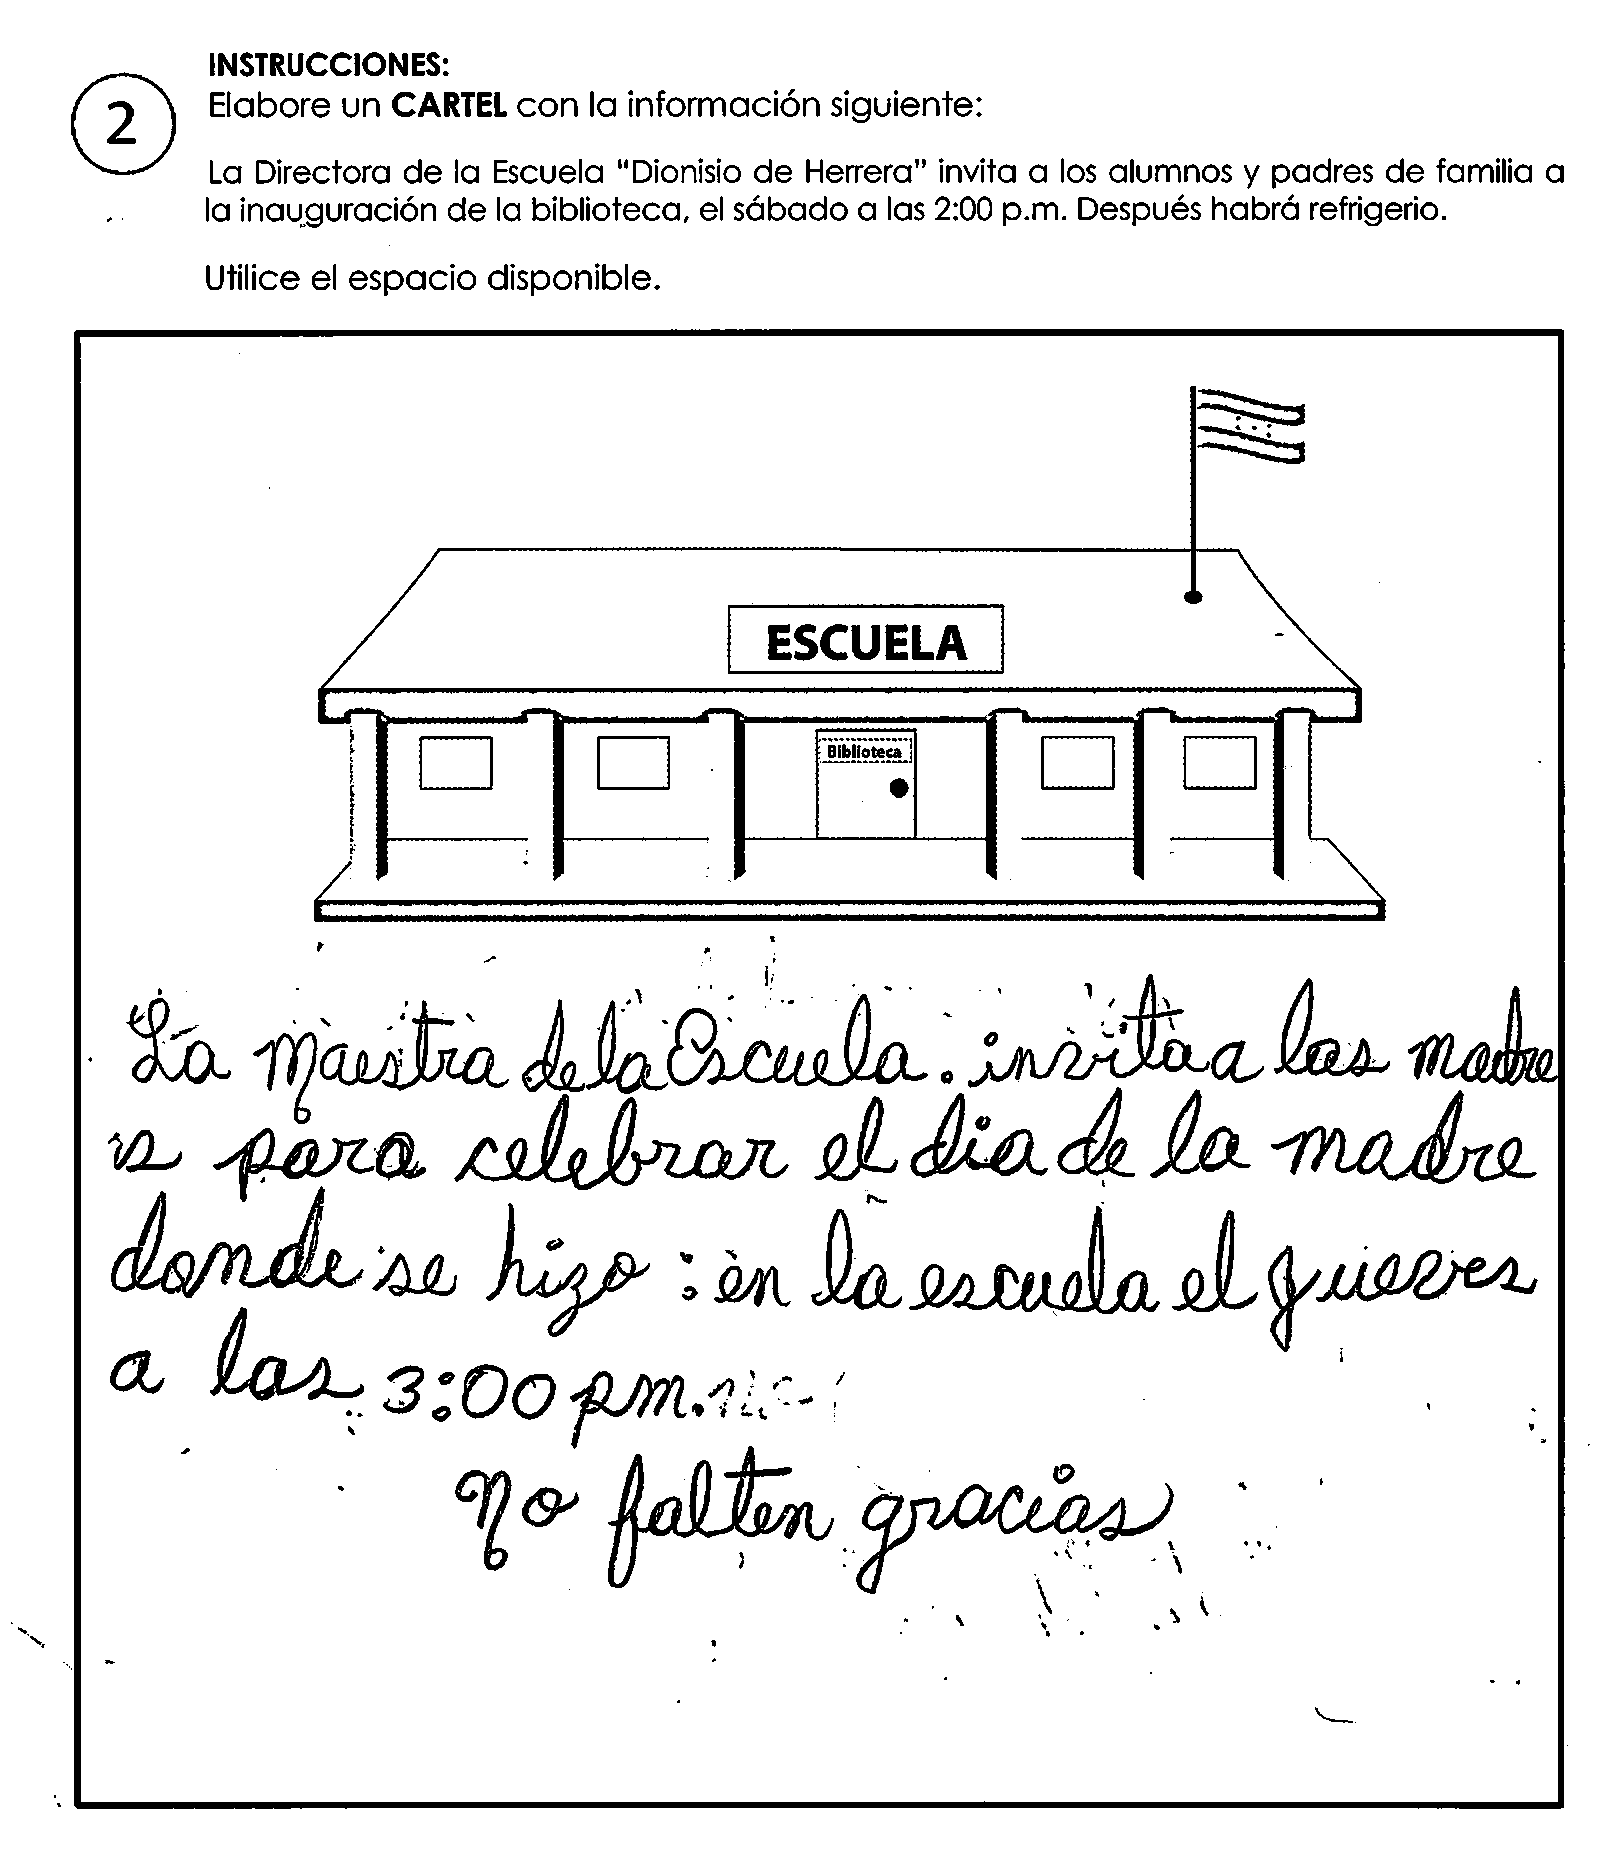 INSTRUCCIONES:
2
Elabore un CARTEL con la información siguiente:
La Directora de la Escuela "Dionisio de Herrera" invita a los alumnos y padres de familia a
la inauguración de la biblioteca, el sábado a las 2:00 p.m. Después habrá refrigerio.
Utilice el espacio disponible.
ESCUELA
Biblioteca
La Maestra de la Escuela. invita a las madre
s para celebrar el dia de la madre
donde se hizo : en la escuela el jueves
a las 3:00 pm.
No falten gracias